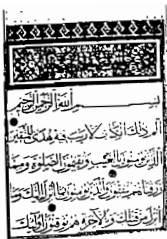 بسم الله الرحمن الرحيم
الم ذلك الكتاب لا ريب فيه هدى للمتقين
الذين يؤمنون بالغيب ويقيمون الصلوة ومما
رزقناهم ينفقون والذين يؤمنون بما انزل اليك وما
انزل من قبلك وبالآخرة هم يوقنون اولئك